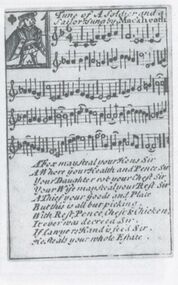 Tune of A Soldier and a
Sailor Sung by Macheath
A Fox may steal your Hens Sir
A Whore your Health and Pence Sir
Your Daughter rob your Chest Sir
Your Wife may steal your Rest Sir
A Thief your goods and Plate
But this is all but picking
With Rest, Pence, Chest & Chicken,
It ever was decreed Sir
If Lawyer's Hand is fee'd Sir
He steals your whole Estate.